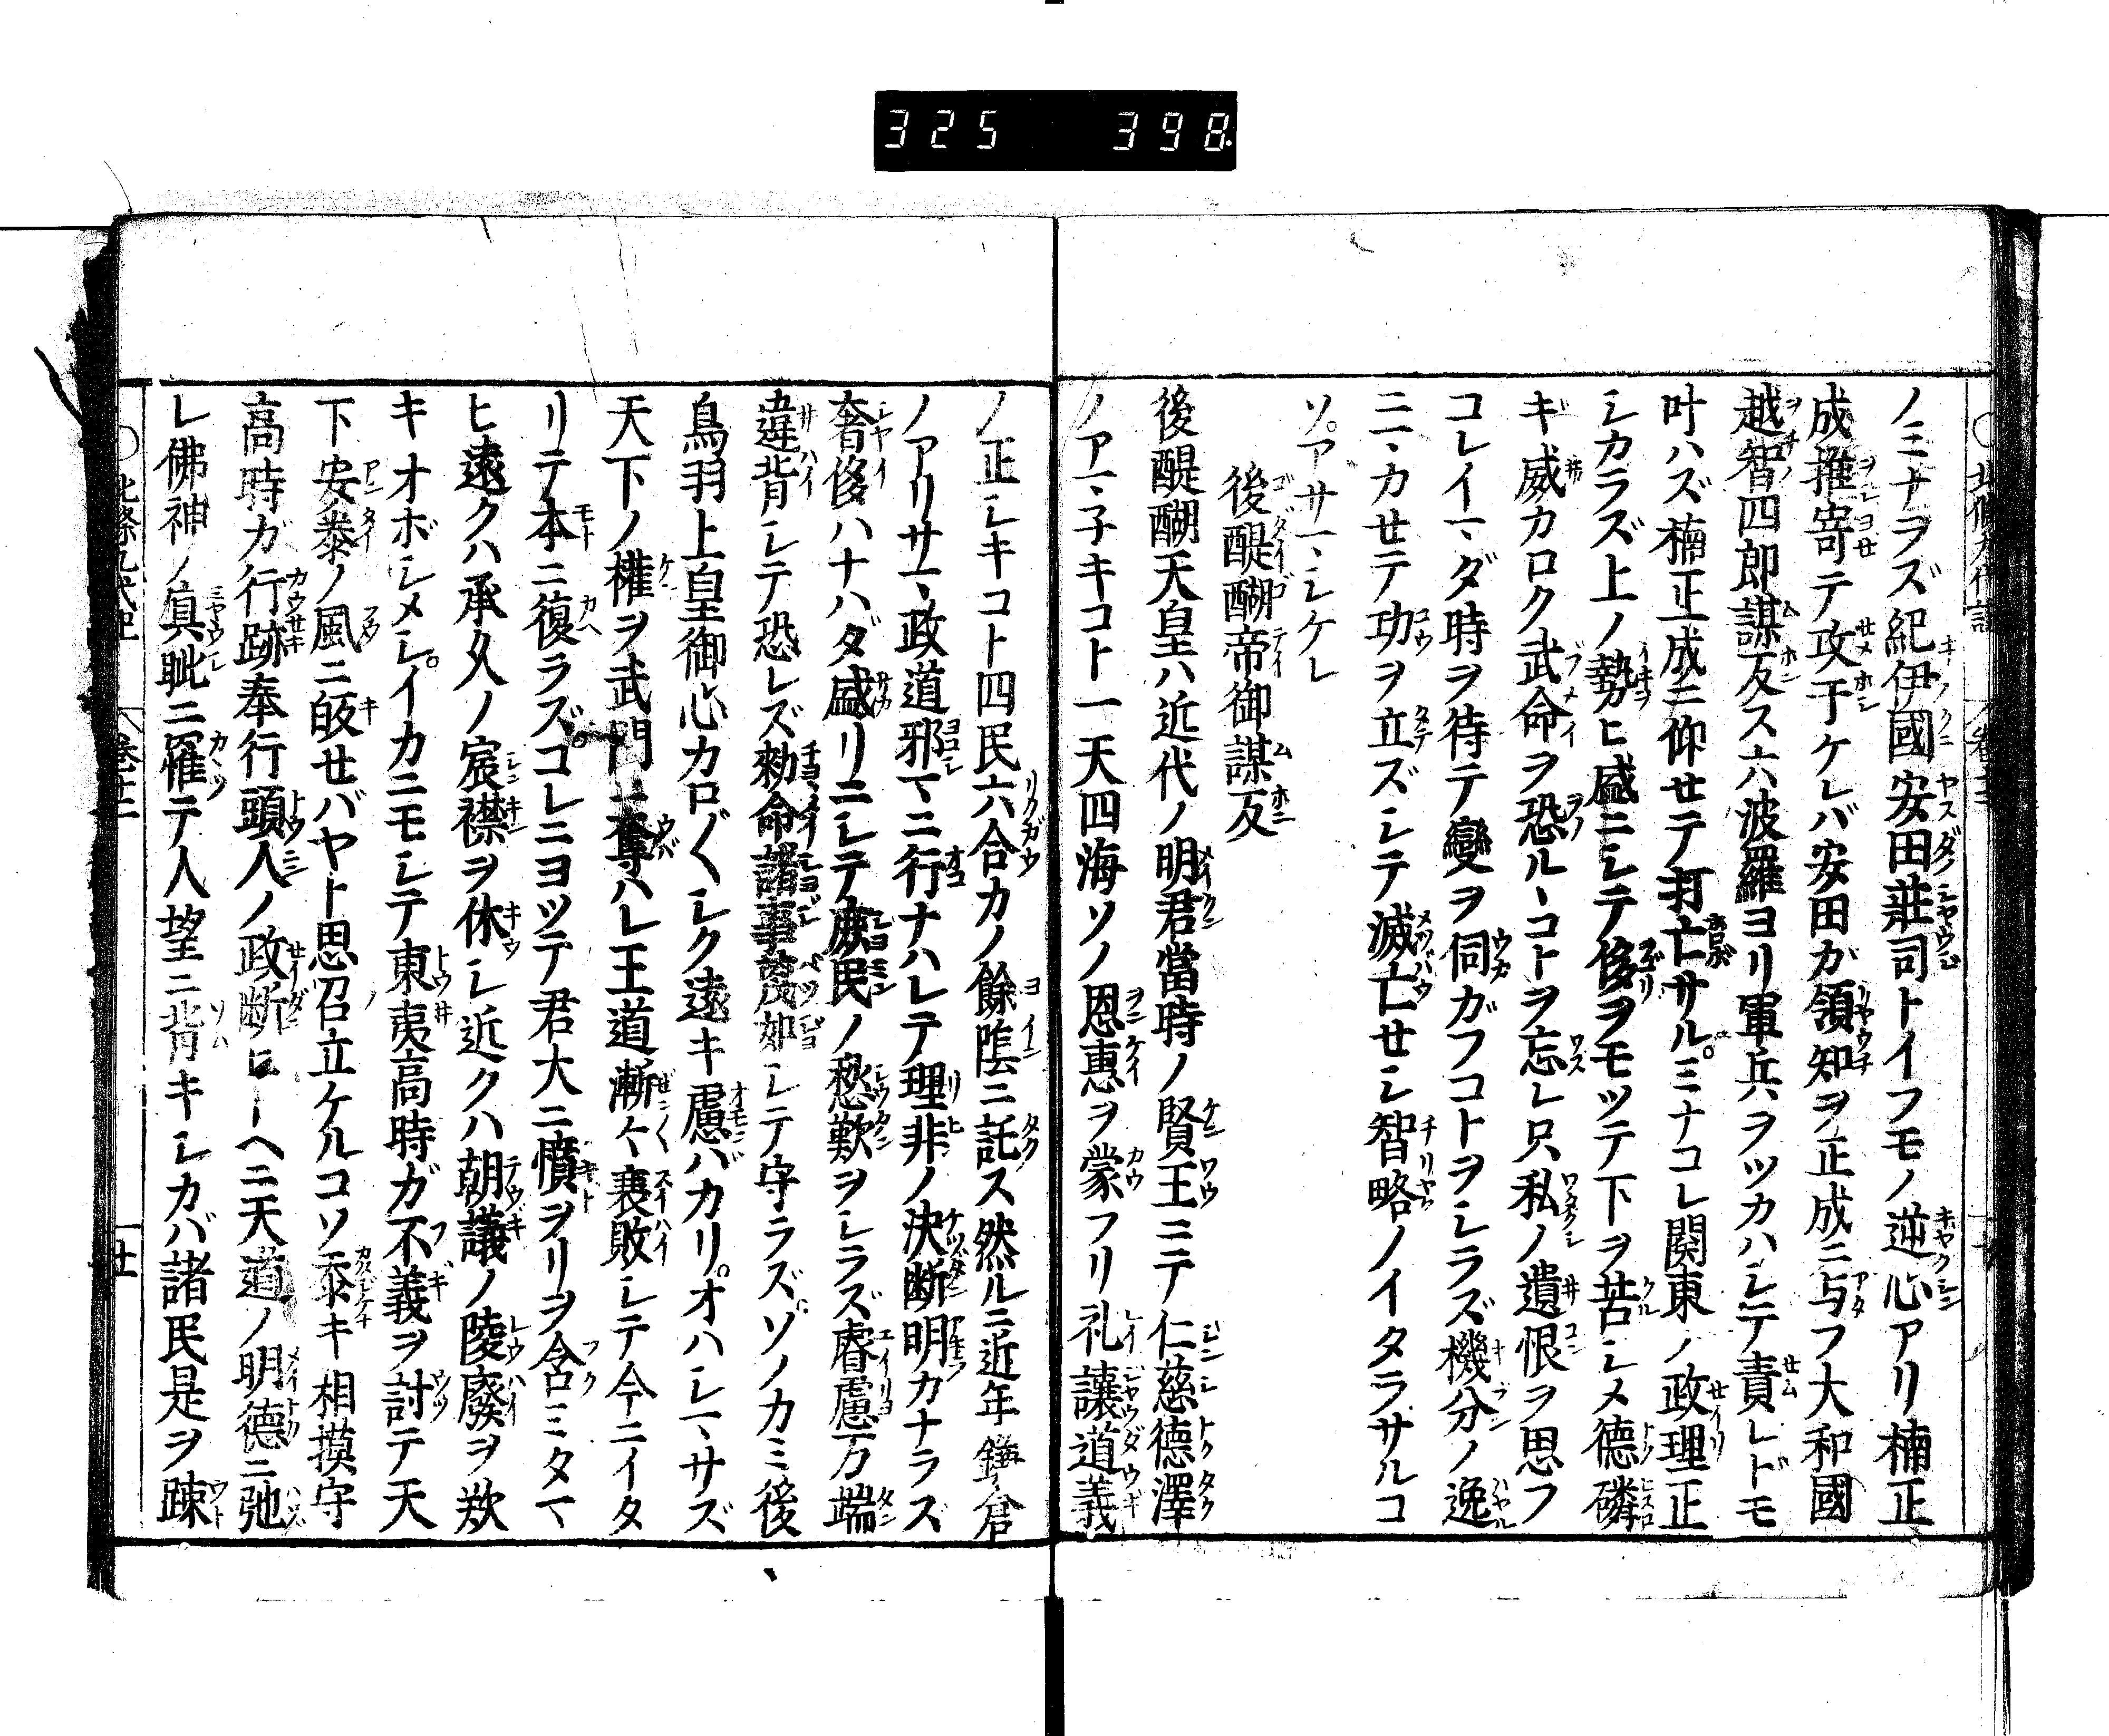 325 398
ノミナラズ紀伊國安田莊司トイフモノ逆心アリ楠正
成推寄テ攻干ケレバ安田が領知ヲ正成ニ与フ大和國
越智四郎謀反ス六波羅ヨリ軍兵ヲツカハシテ責レドモ
叶ハズ楠正成ニ仰セテ打亡サル。ミナコレ関東ノ政理正
シカラズ上ノ勢ヒ盛ニシテ侈ヲモツテ下ヲ苦シメ德磷
ギ威カロク武命ヲ恐ルヽコトヲ忘レ只私ノ遺恨ヲ思フ
コレイマダ時ヲ待テ變ヲ伺ガフコトヲシラズ機分ノ逸
ニマカセテ功ヲ立ズシテ滅亡セシ智略ノイタラサルコ
ソ。アサマシケレ
後醍醐帝御謀反
後醍醐天皇ハ近代ノ明君當時ノ賢王ニテ仁慈德澤
ノアマ子キコト一天四海ソノ恩惠ヲ蒙フリ礼讓道義
ノ正シキコト四民六合カノ餘䕃ニ託ス然ルニ近年鎌倉
ノアリサマ政道邪マニ行ナハレテ理非ノ決断明カナラズ
奢侈ハナハダ盛リニシテ庶民ノ愁歎ヲシラズ睿慮万端
違背シテ恐レズ勅命諸事蔑如シテ守ラズ。ソノカミ後
鳥羽上皇御心カロ〲シク遠キ慮バカリ。オハシマサズ
天下ノ權ヲ武門ニ奪ハレ王道漸々衰敗シテ今ニイタ
リテ本ニ復ラズ。コレニヨツテ君大ニ憤ヲリヲ含ミタマ
ヒ遠クハ承久ノ宸襟ヲ休シ近クハ朝議ノ陵廢ヲ歎
キオボシメシ。イカニモシテ東夷高時ガ不義ヲ討テ天
下安泰ノ風ニ皈セバヤト思召立ケルコソ忝キ相摸守
高時ガ行跡奉行頭人ノ政断ヘニ天道ノ明德ニ弛
レ佛神ノ眞眦ニ罹テ人望ニ背キシカバ諸民是ヲ疎
北條九代記
卷十二